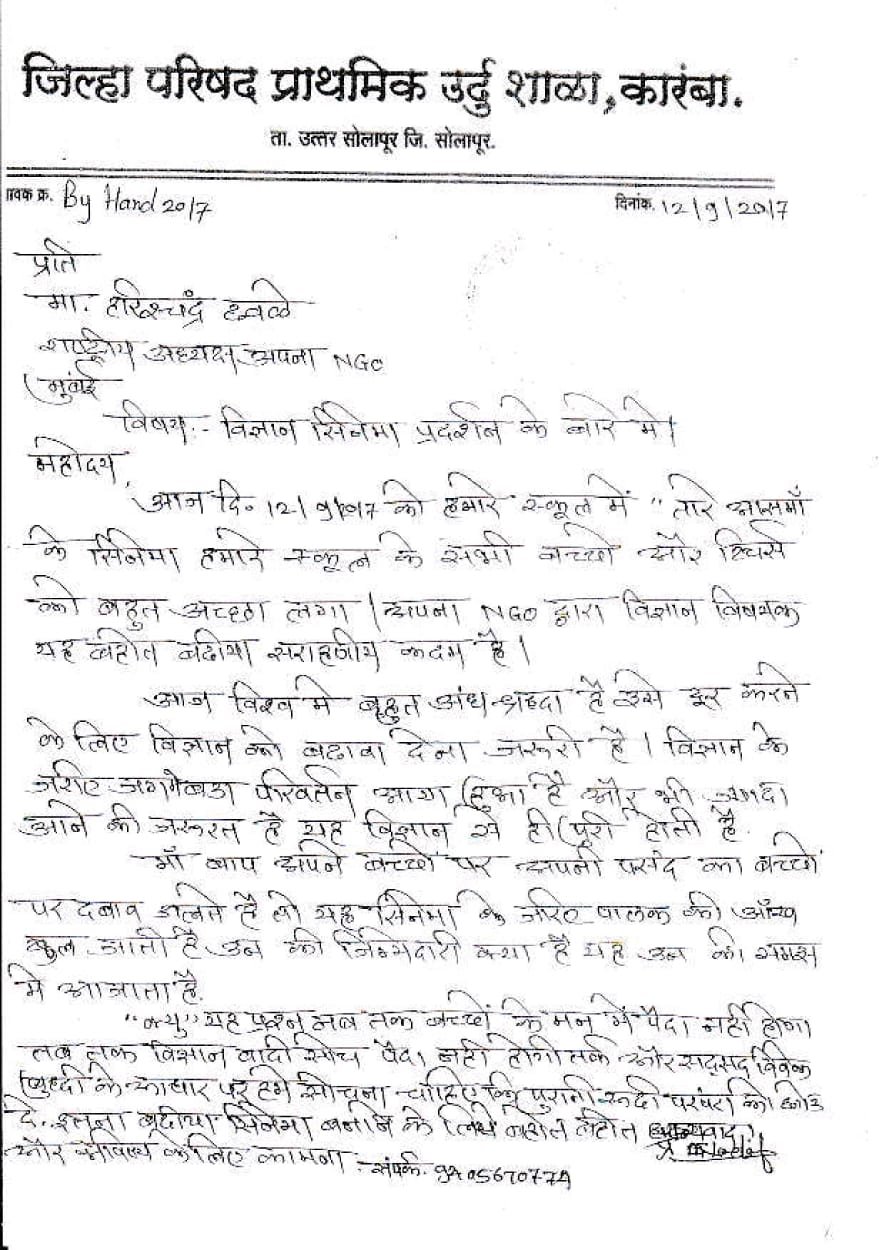 जिल्हा परिषद प्राथमिक उर्दु शाळा, कारंबा.
ता. उत्तर सोलापूर जि. सोलापूर.
वक क्र. By Hand 2017 दिनांक. 12/9/2017
प्रति
मा. हरिश्चंद्र हवळे
राष्ट्रीय अध्यक्ष अपना NGO
मुंबई
विषय:- विज्ञान सिनेमा प्रदर्शन के बारे मे।
महोदय,
आज दि. 12/9/2017 को हमारे स्कूल में "तारे आसमाँ
के सिनेमा हमारे स्कूल के सभी बच्चो और
को बहुत अच्छा लगा। अपना NGO द्वारा विज्ञान विषयक
यह बहोत बढीया सराहणीय कदम है।
आज विश्व मे बहुत अंध श्रध्दा है इसे दूर करने
के लिए विज्ञान को बढावा देना जरूरी है। विज्ञान के
जरीए परिवर्तन आया हुआ है और भी जादा
आने की जरूरत है यह विज्ञान से ही पूरी होती है.
माँ बाप अपने बच्चों पर अपनी पसंद का बच्चों
पर दबाव डालते है तो यह सिनेमा के जरिए पालक की आँख
खुल जाती है उन की जिम्मेदारी क्या है यह उन को समझ
मे आजाता है.
"क्यु" यह प्रश्न जब तक बच्चों के मन में पैदा नहीं होगा
तब तक विज्ञान वादी सोच पैदा नही होगी तर्क और सदसद विवेक
बुध्दी के आधार पर हमे सोचना चाहिए कि पुरानी रूढी परंपरा को छोड
दे. इतना बढीया सिनेमा बनाने के लिये बहोत बहोत धन्यवाद।
और भविष्य के लिए कामना. संपर्क.